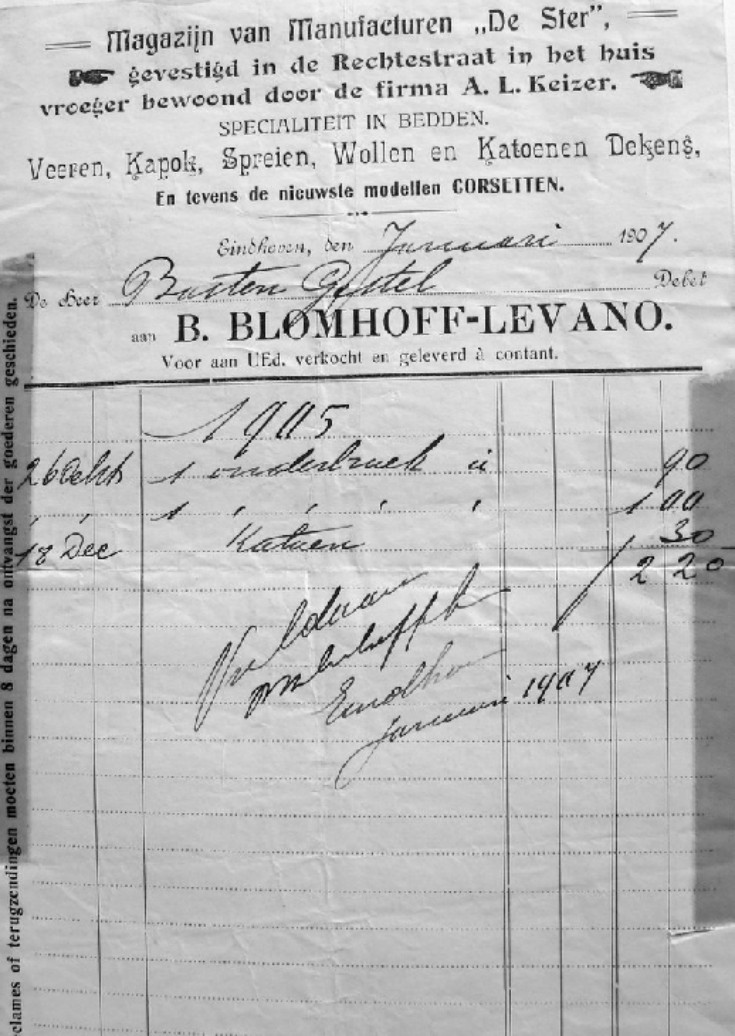 Magazijn van Manufacturen „De Ster”,
gevestigd in de Rechtestraat in het huis
vroeger bewoond door de firma A. L. Keizer.
SPECIALITEIT IN BEDDEN.
Veeren, Kapok, Spreien, Wollen en Katoenen Dekens,
En tevens de nieuwste modellen CORSETTEN.
Eindhoven, den Januari 1907.
De Heer Gestel Debet
aan B. BLOMHOFF-LEVANO.
Voor aan UEd. verkocht en geleverd à contant.
1905
26 1 onderbroek à 90
" " 1 " " " " 1 00
18 Dec Katoen 30
2 20
Voldaan
Januari 1907
eclames of terugzendingen moeten binnen 8 dagen na ontvangst der goederen geschieden.